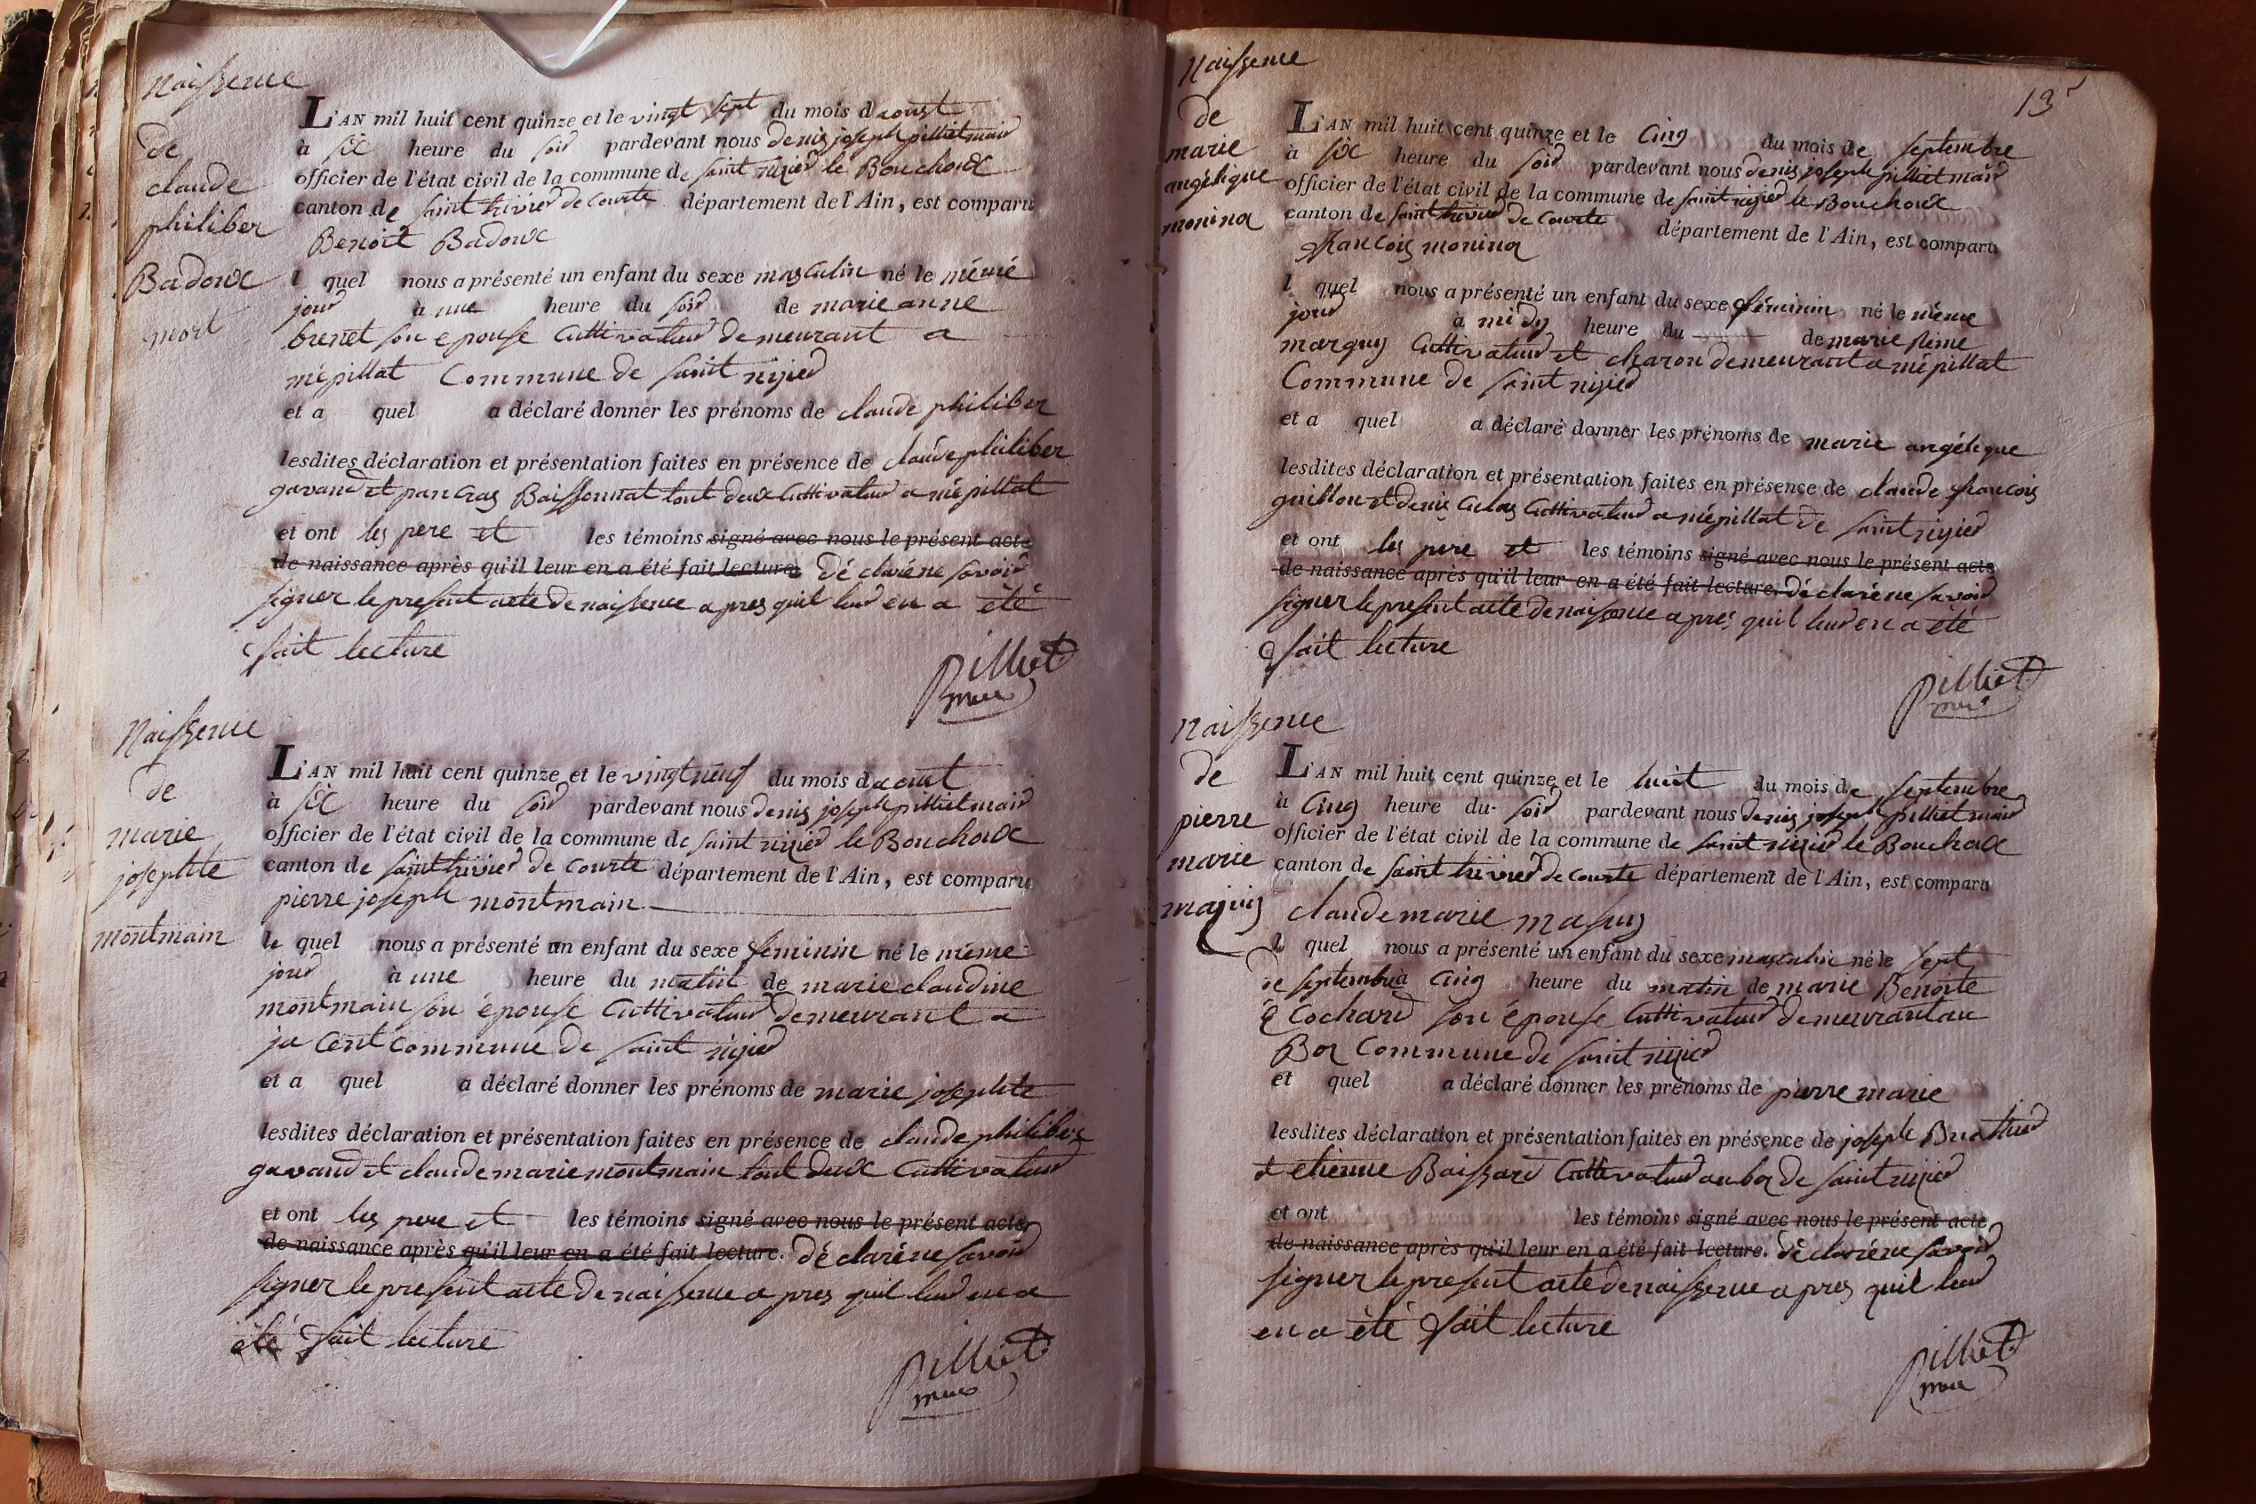 Naissence
de
claude
philiber
Badoux
mort
L'AN mil huit cent quinze et le vingt sept du mois daoust
à six heure du soir pardevant nous denis joseph pilliet maire
officier de l'état civil de la commune de saint nizier le Bouchoux
canton de saint trivier de courte département de l'Ain, est comparu
Benoit Badoux
l quel nous a présenté un enfant du sexe masculin né le même
jour à une heure du soir de marie anne
brenet son epouse Cultivateur demeurant a
mépillat Commune de saint nizier
et a quel a déclaré donner les prénoms de claude philiber
lesdites déclaration et présentation faites en présence de claude philiber
gavand et pancras Boissonnat tout deux Cultivateur a mépillat
et ont les pere et les témoins signé avec nous le présent acte
de naissance après qu'il leur en a été fait lecture. déclaré ne savoir
signer le present acte de naissence apres quil leur en a été
fait lecture
Pilliet
maire
Naissence
de
marie
josephte
montmain
L'AN mil huit cent quinze et le vingt neuf du mois daoust
à six heure du soir pardevant nous denis joseph pilliet maire
officier de l'état civil de la commune de saint nizier le Bouchoux
canton de saint trivier de courte département de l'Ain, est comparu
pierre joseph montmain
le quel nous a présenté un enfant du sexe feminin né le même
jour à une heure du matin de marie claudine
montmain son épouse Cultivateur demeurant a
ja Cent commune de saint nizier
et a quel a déclaré donner les prénoms de marie josephte
lesdites déclaration et présentation faites en présence de claude philiber
gavand et claude marie montmain tout deux Cultivateur
et ont les pere et les témoins signé avec nous le présent acte
de naissance après qu'il leur en a été fait lecture. déclaré ne savoir
signer le present acte de naissence apres quil leur en a
été fait lecture
Pilliet
maire
13
Naissence
de
marie
angélique
monina
L'AN mil huit cent quinze et le Cinq du mois de septembre
à six heure du soir pardevant nous denis joseph pilliet maire
officier de l'état civil de la commune de saint nizier le Bouchoux
canton de saint trivier de courte département de l'Ain, est comparu
francois monina
l quel nous a présenté un enfant du sexe féminin né le même
jour à midy heure du de marie
marguy Cultivateur et charon demeurant a mépillat
Commune de saint nizier
et a quel a déclaré donner les prénoms de marie angélique
lesdites déclaration et présentation faites en présence de claude francois
guillon et denis Cultivateur a mépillat de saint nizier
et ont les pere et les témoins signé avec nous le présent acte
de naissance après qu'il leur en a été fait lecture. déclaré ne savoir
signer le present acte de naissence apres quil leur en a été
fait lecture
Pilliet
maire
Naissence
de
pierre
marie
L'AN mil huit cent quinze et le huit du mois de septembre
à Cinq heure du soir pardevant nous denis joseph pilliet maire
officier de l'état civil de la commune de saint nizier le Bouchoux
canton de saint trivier de courte département de l'Ain, est comparu
claude marie
l quel nous a présenté un enfant du sexe masculin né le sept
de septembre à Cinq heure du matin de marie Benoite
Cochard son épouse Cultivateur demeurant au
Bor Commune de saint nizier
et quel a déclaré donner les prénoms de pierre marie
lesdites déclaration et présentation faites en présence de joseph Buathier
et etienne Boissard Cultivateur au bor de saint nizier
et ont les témoins signé avec nous le présent acte
de naissance après qu'il leur en a été fait lecture. déclaré ne savoir
signer le present acte de naissence apres quil leur
en a été fait lecture
Pilliet
maire